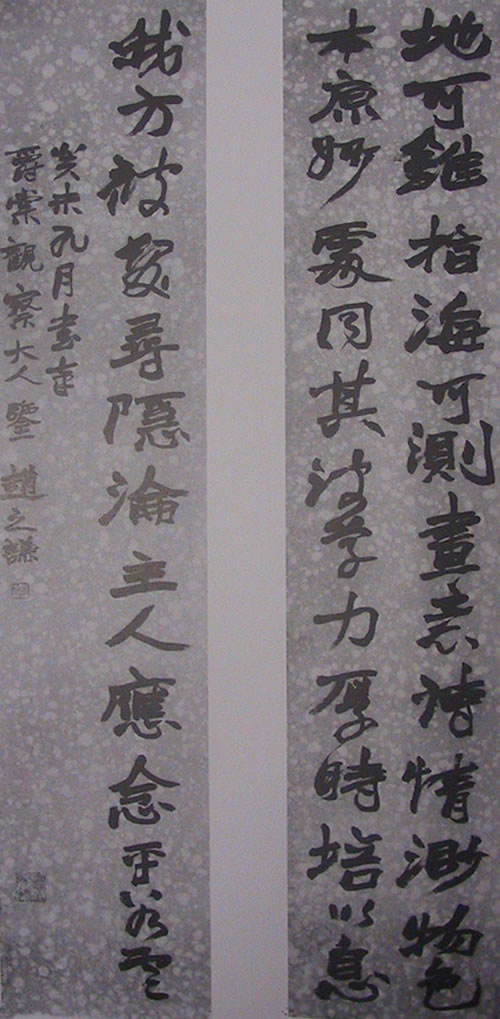 地可錐指海可測畫意詩情渺物色
本原妙處同其波學力厚時培以息
我方被髮尋隱淪主人應念平
癸未九月書奉
爵棠觀察大人鑒 趙之謙